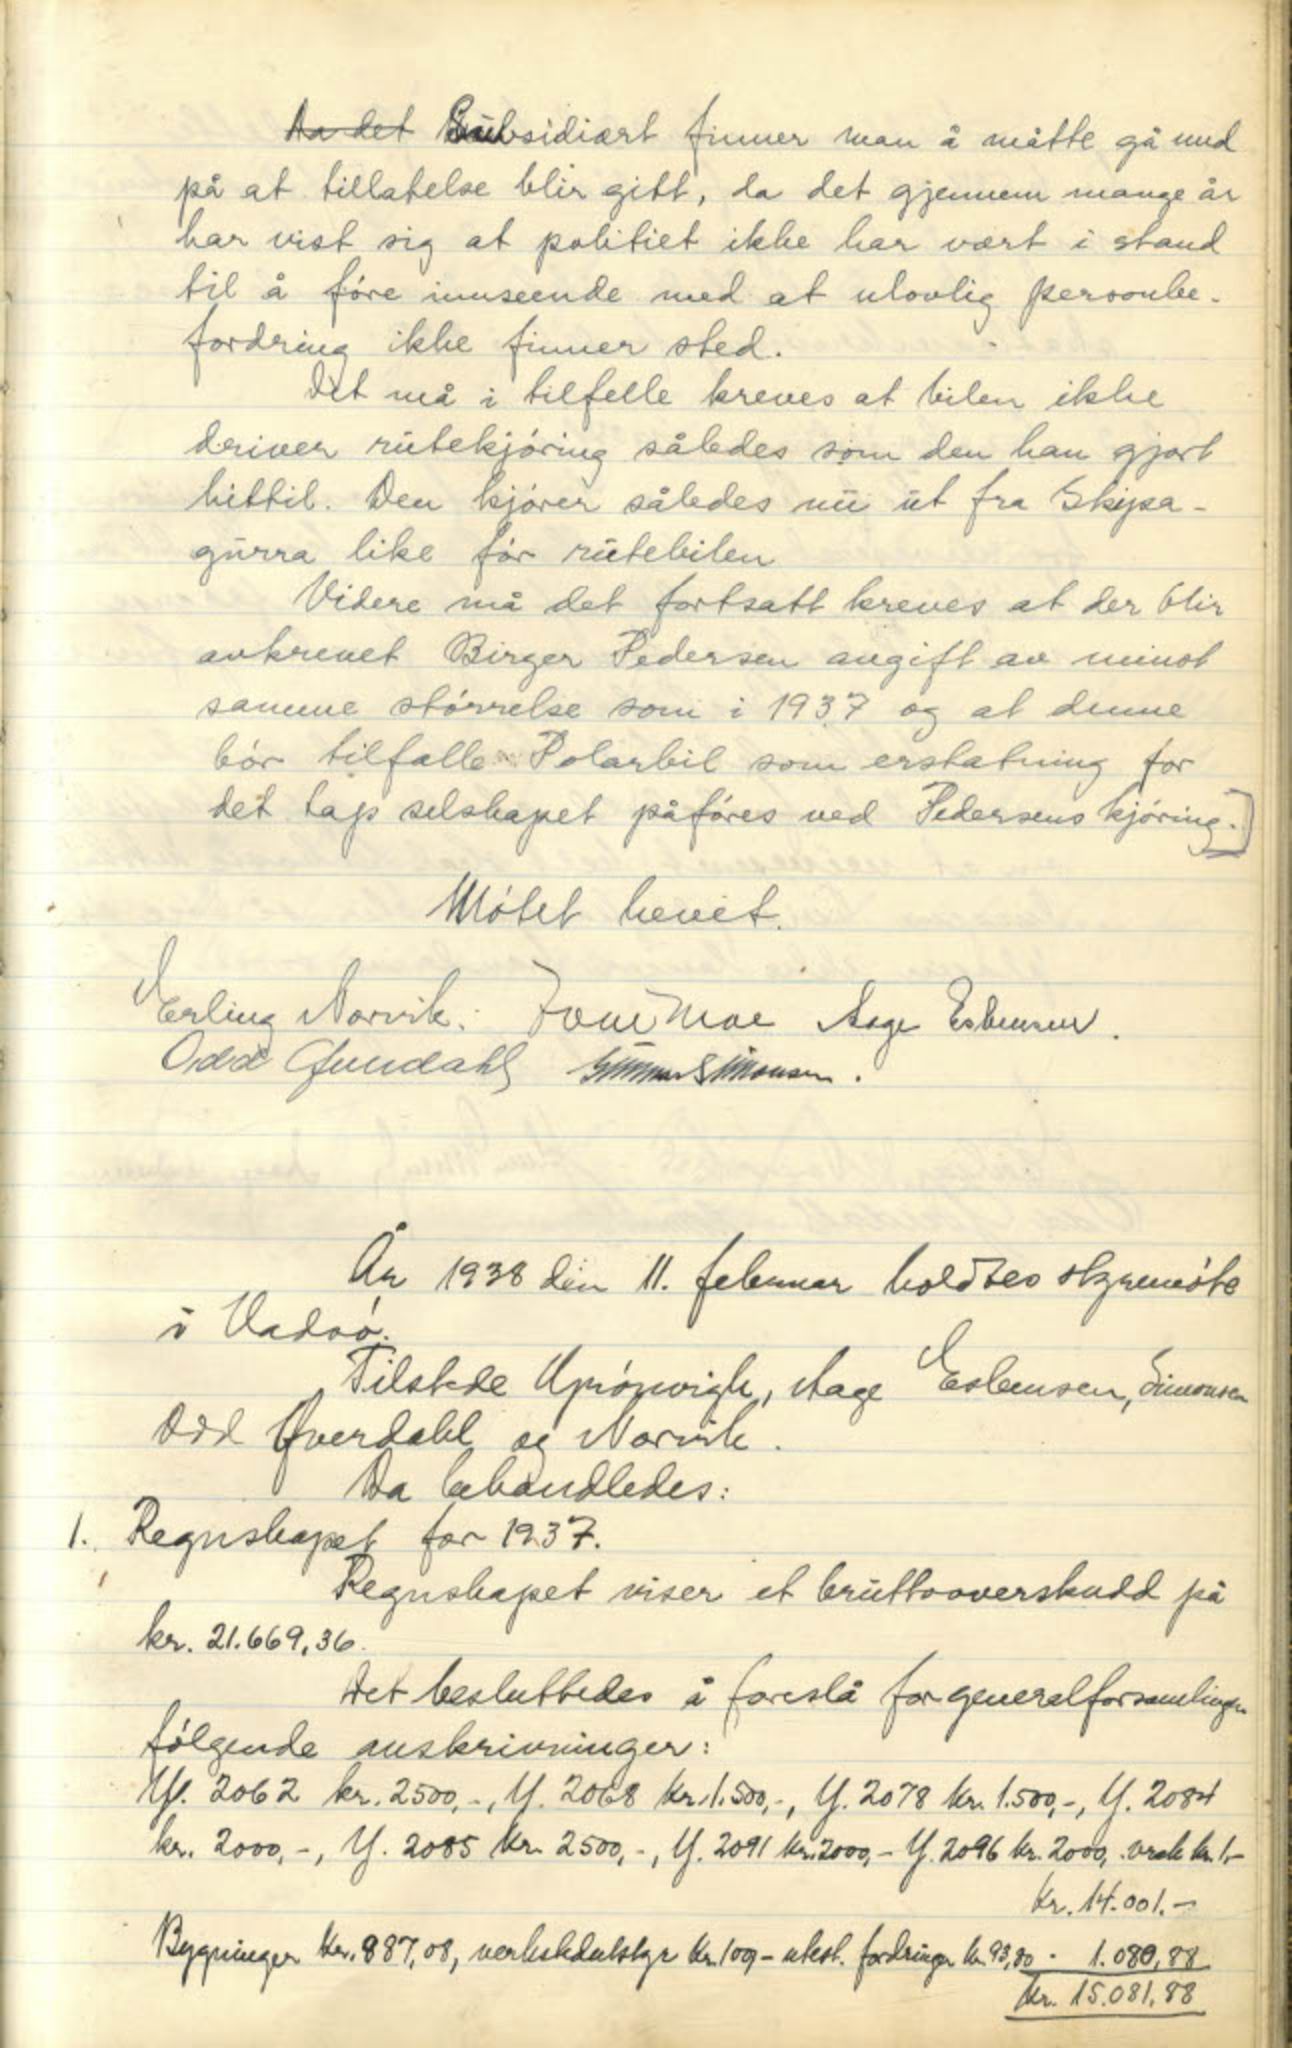 Da det Subsidiært finner man å måtte gå med
på at tillatelse blir gitt, da det gjennem mange år
har vist sig at politiet ikke har vært i stand
til å føre innseende med at ulovlig personbe-
fordring ikke finner sted.
Det må i tilfelle kreves at bilen ikke
driver rutekjøring således som den har gjort
hittil. Den kjører således nu ut fra Skipa-
gurra like før rutebilen
Videre må det fortsatt kreves at der blir
avkrevet Birger Pedersen avgift av minst
samme størrelse som i 1937 og at denne
bør tilfalle Polarbil som erstatning for
det tap selskapet påføres ved Pedersens kjøring.]
Møtet hevet.
Erling Norvik. Moe Aage Esbensen.
Odd Gundahl Gunnar Simonsen.
År 1938 den 11. februar holdtes styremøte
i Vadsø.
Tilstede Aage Esbensen, Simonsen
Odd Gverdahl og Norvik.
Da behandledes:
1. Regnskapet for 1937.
Regnskapet viser et bruttooverskudd på
kr. 21.669,36.
Det besluttedes å foreslå for generalforsamlingen
følgende avskrivninger:
Y. 2062 kr. 2500,-, Y. 2068 kr. 1.500,-, Y. 2078 kr. 1.500,-, Y. 2084
kr. 2000,-, Y. 2085 kr. 2500,-, Y. 2091 kr. 2000,- Y. 2096 kr. 2000, vrak kr. 1,-
kr. 14.001.-
Bygninger kr. 887,08, verkstedutstyr kr. 100,- utest. fordringer kr. 93,80 - 1.080,88
kr. 15.081,88